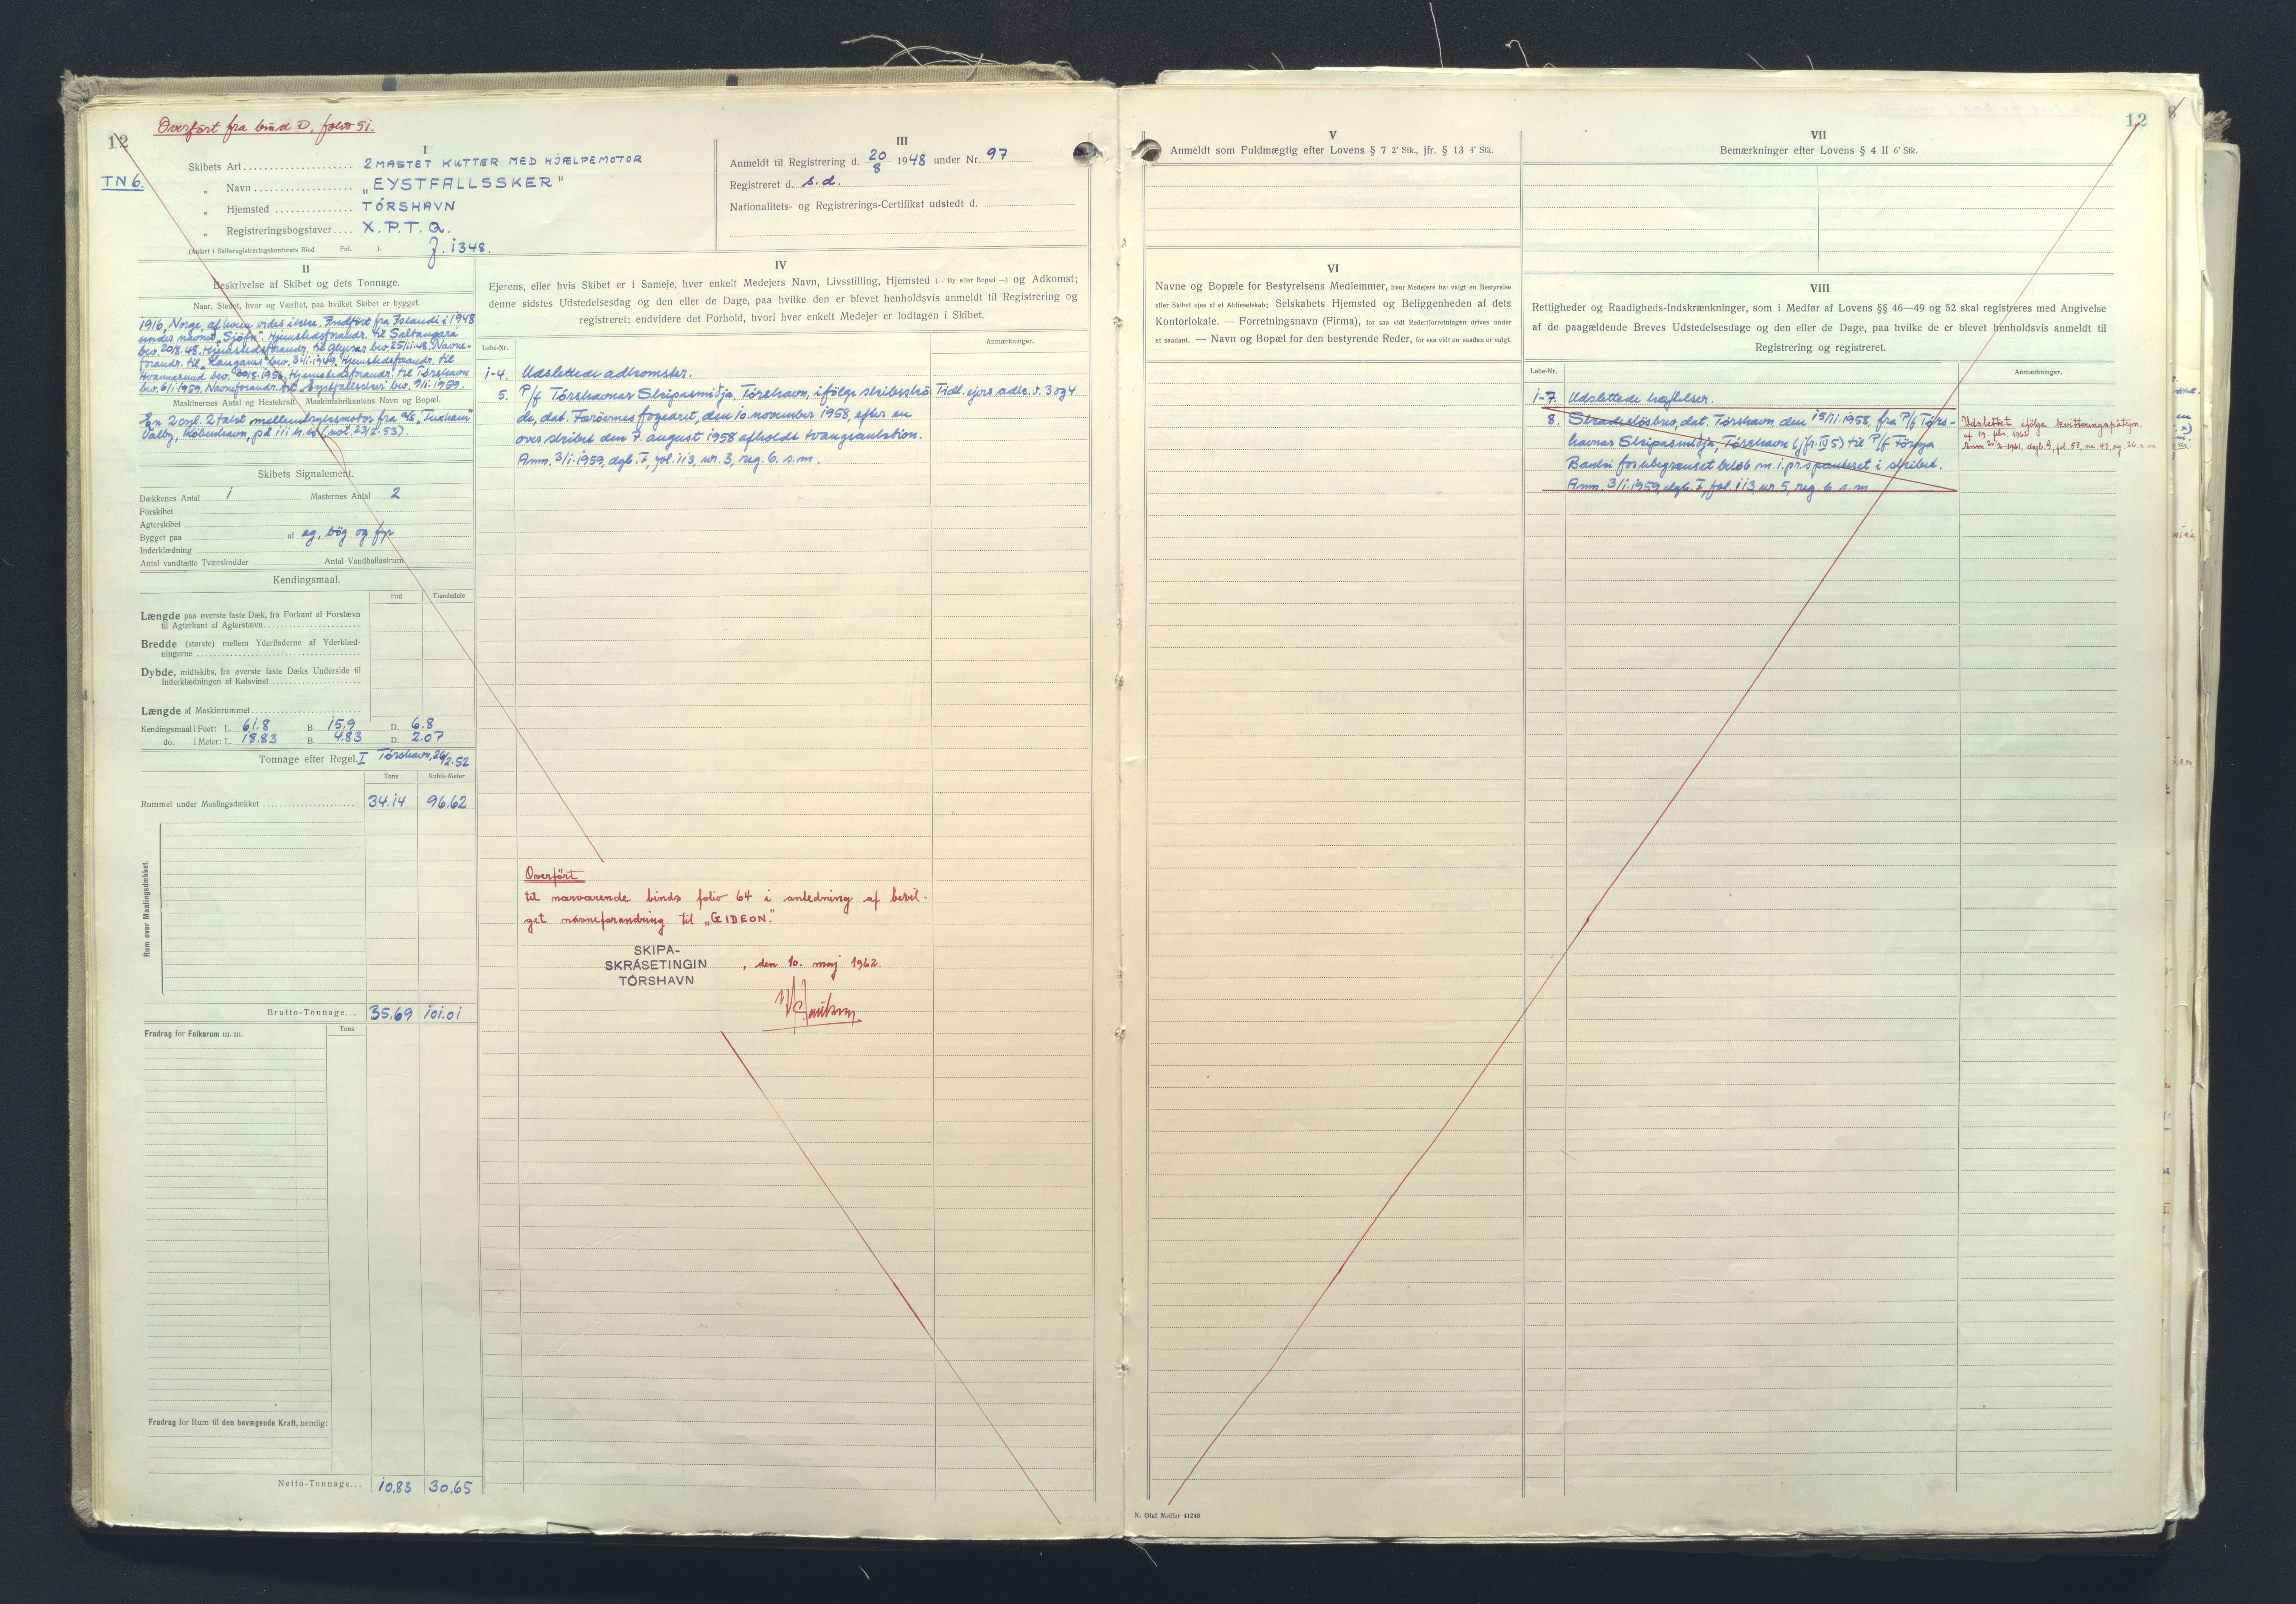 Overført fra bind D, folio 51.
12
TN 6.
I
Skibets Art 2 MASTET KUTTER MED HJÆLPEMOTOR
„ Navn „EYSTFALLSSKER"
„ Hjemsted TÓRSHAVN
„ Registreringsbogstaver X.P.T.Q.
(Anført i Skibsregistreringskontorets Bind Fol. ).
J. 1348.
III
Anmeldt til Registrering d. 20/8 1948 under Nr. 97
Registreret d. s.d.
Nationalitets- og Registrerings-Certifikat udstedt d.
II
Beskrivelse af Skibet og dets Tonnage.
Naar, Stedet, hvor og Værftet, paa hvilket Skibet er bygget.
1916, Norge, af hvem vides ikke. Indført fra Island i 1948
under navnet „Sjöfn". Hjemstedsforandr. til Saltangará
bev. 20/8.48. Hjemstedsforandr. til Glyvrar bev. 25/11.48. Navne-
forandr. til „Langanes" bev. 3/1.1949. Hjemstedsforandr. til
Hvannasund bev. 30/5.1956. Hjemstedsforandr. til Tórshavn
bev. 6/1.1959. Navneforandr. til „Eystfallsskeri" bev. 9/1.1959.
Maskinernes Antal og Hestekraft. Maskinfabrikantens Navn og Bopæl.
En 2 cyl. 2 takt mellemtryksmotor fra a/s „Tuxham"
Valby, København, på 111 h.k. (not. 23/2.53).
Skibets Signalement.
Dækkenes Antal 1 Masternes Antal 2
Forskibet
Agterskibet
Bygget paa af eg, bøg og fyr
Inderklædning
Antal vandtætte Tværskodder Antal Vandballastrum
Kendingsmaal.
Fod Tiendedele
Længde paa øverste faste Dæk, fra Forkant af Forstævn
til Agterkant af Agterstævn
Bredde (største) mellem Yderfladerne af Yderklæd-
ningerne
Dybde, midtskibs, fra øverste faste Dæks Underside til
Inderklædningen af Kølsvinet
Længde af Maskinrummet
Kendingsmaal i Feet: L. 61.8 B. 15.9 D. 6.8
do. i Meter: L. 18.83 B. 4.83 D. 2.07
Tonnage efter Regel I Tórshavn, 26/2.52
Tons Kubik-Meter
Rummet under Maalingsdækket 34.14 96.62
Rum over Maalingsdækket.
Brutto-Tonnage... 35.69 101.01
Fradrag for Folkerum m. m. Tons
Fradrag for Rum til den bevægende Kraft, nemlig:
Netto-Tonnage... 10.83 30.65
IV
Ejerens, eller hvis Skibet er i Sameje, hver enkelt Medejers Navn, Livsstilling, Hjemsted (— By eller Bopæl —) og Adkomst;
denne sidstes Udstedelsesdag og den eller de Dage, paa hvilke den er blevet henholdsvis anmeldt til Registrering og
registreret; endvidere det Forhold, hvori hver enkelt Medejer er lodtagen i Skibet.
Løbe-Nr. Anmærkninger.
1-4. Udslettede adkomster.
5. P/f Tórshavnar Skipasmiðja, Tórshavn, ifølge skibsskø- Tidl. ejers adk. s. 3 og 4
de, dat. Færøernes fogedret, den 10. november 1958, efter en
over skibet den 7. august 1958 afholdt tvangsauktion.
Anm. 3/1.1959, dgb. I, fol. 113, nr. 3, reg. 6. s.m.
Overført
til nærværende binds folio 64 i anledning af bevil-
get navneforandring til „GIDEON".
SKIPA-
SKRÁSETINGIN
TÓRSHAVN
, den 10. maj 1962.
12
V
Anmeldt som Fuldmægtig efter Lovens § 7 2' Stk., jfr. § 13 4' Stk.
VII
Bemærkninger efter Lovens § 4 II 6' Stk.
VI
Navne og Bopæle for Bestyrelsens Medlemmer, hvor Medejere har valgt en Bestyrelse
eller Skibet ejes af et Aktieselskab; Selskabets Hjemsted og Beliggenheden af dets
Kontorlokale. — Forretningsnavn (Firma), for saa vidt Rederiforretningen drives under
et saadant. — Navn og Bopæl for den bestyrende Reder, for saa vidt en saadan er valgt.
VIII
Rettigheder og Raadigheds-Indskrænkninger, som i Medfør af Lovens §§ 46—49 og 52 skal registreres med Angivelse
af de paagældende Breves Udstedelsesdage og den eller de Dage, paa hvilke de er blevet henholdsvis anmeldt til
Registrering og registreret.
Løbe-Nr. Anmærkninger.
1-7. Udslettede hæftelser.
8. Skadesløsbrev, dat. Tórshavn, den 15/11.1958, fra P/f Tórs-
havnar Skipasmiðja, Tórshavn (jfr. IV 5) til P/f Føroya
Banki for ubegrænset beløb m. 1. pr. s. panteret i skibet.
Anm. 3/1.1959, dgb. I, fol. 113, nr. 5, reg. 6. s.m.
Udslettet ifølge kvitteringspåtegn.
af 19. febr. 1962
N. Olaf Møller 41240